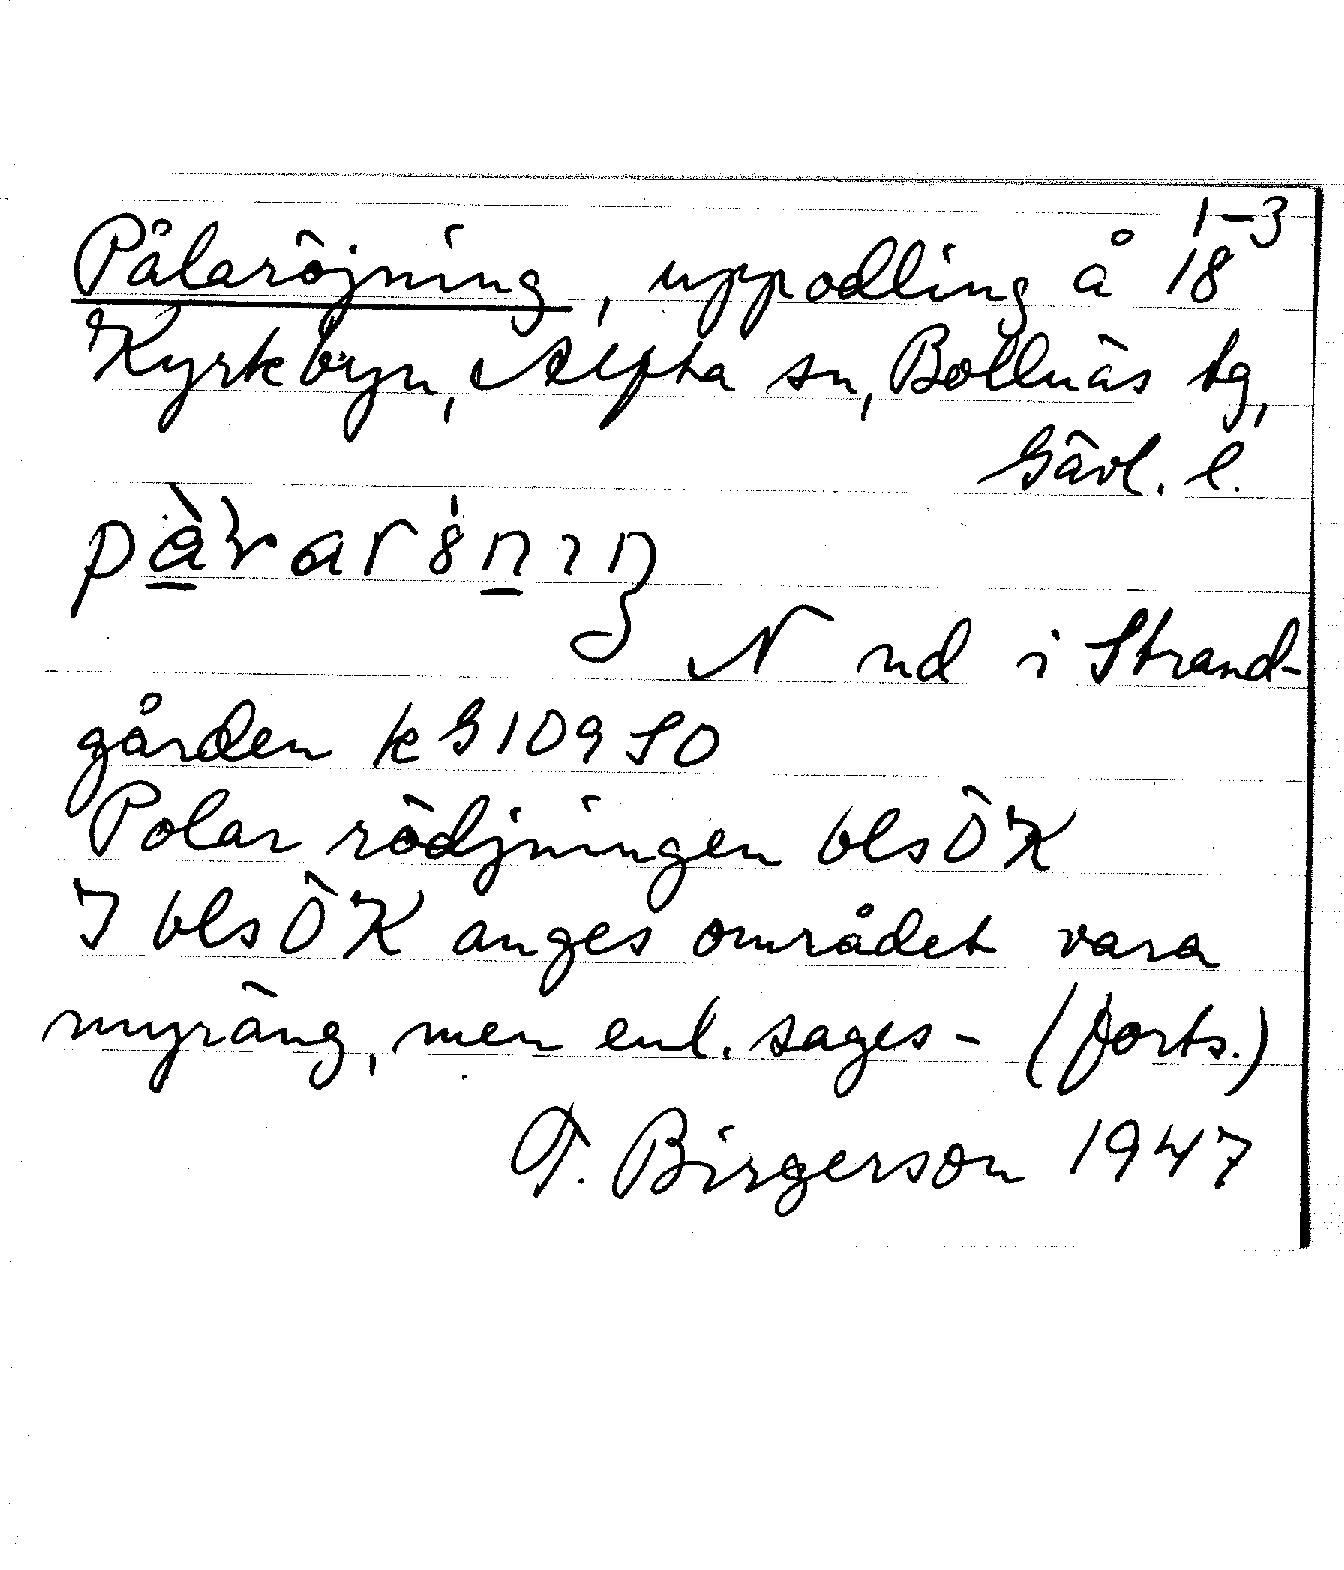 Pålaröjning, uppodling å 18 1–3
Kyrkbyn, Alfta sn, Bollnäs tg,
Gävl. l.
N nd i Strand-
gården k G 109 SO
Polar rödjningen bls ÖK
I bls ÖK anges området vara
myräng, men enl. sages- (forts.)
T. Birgerson 1947